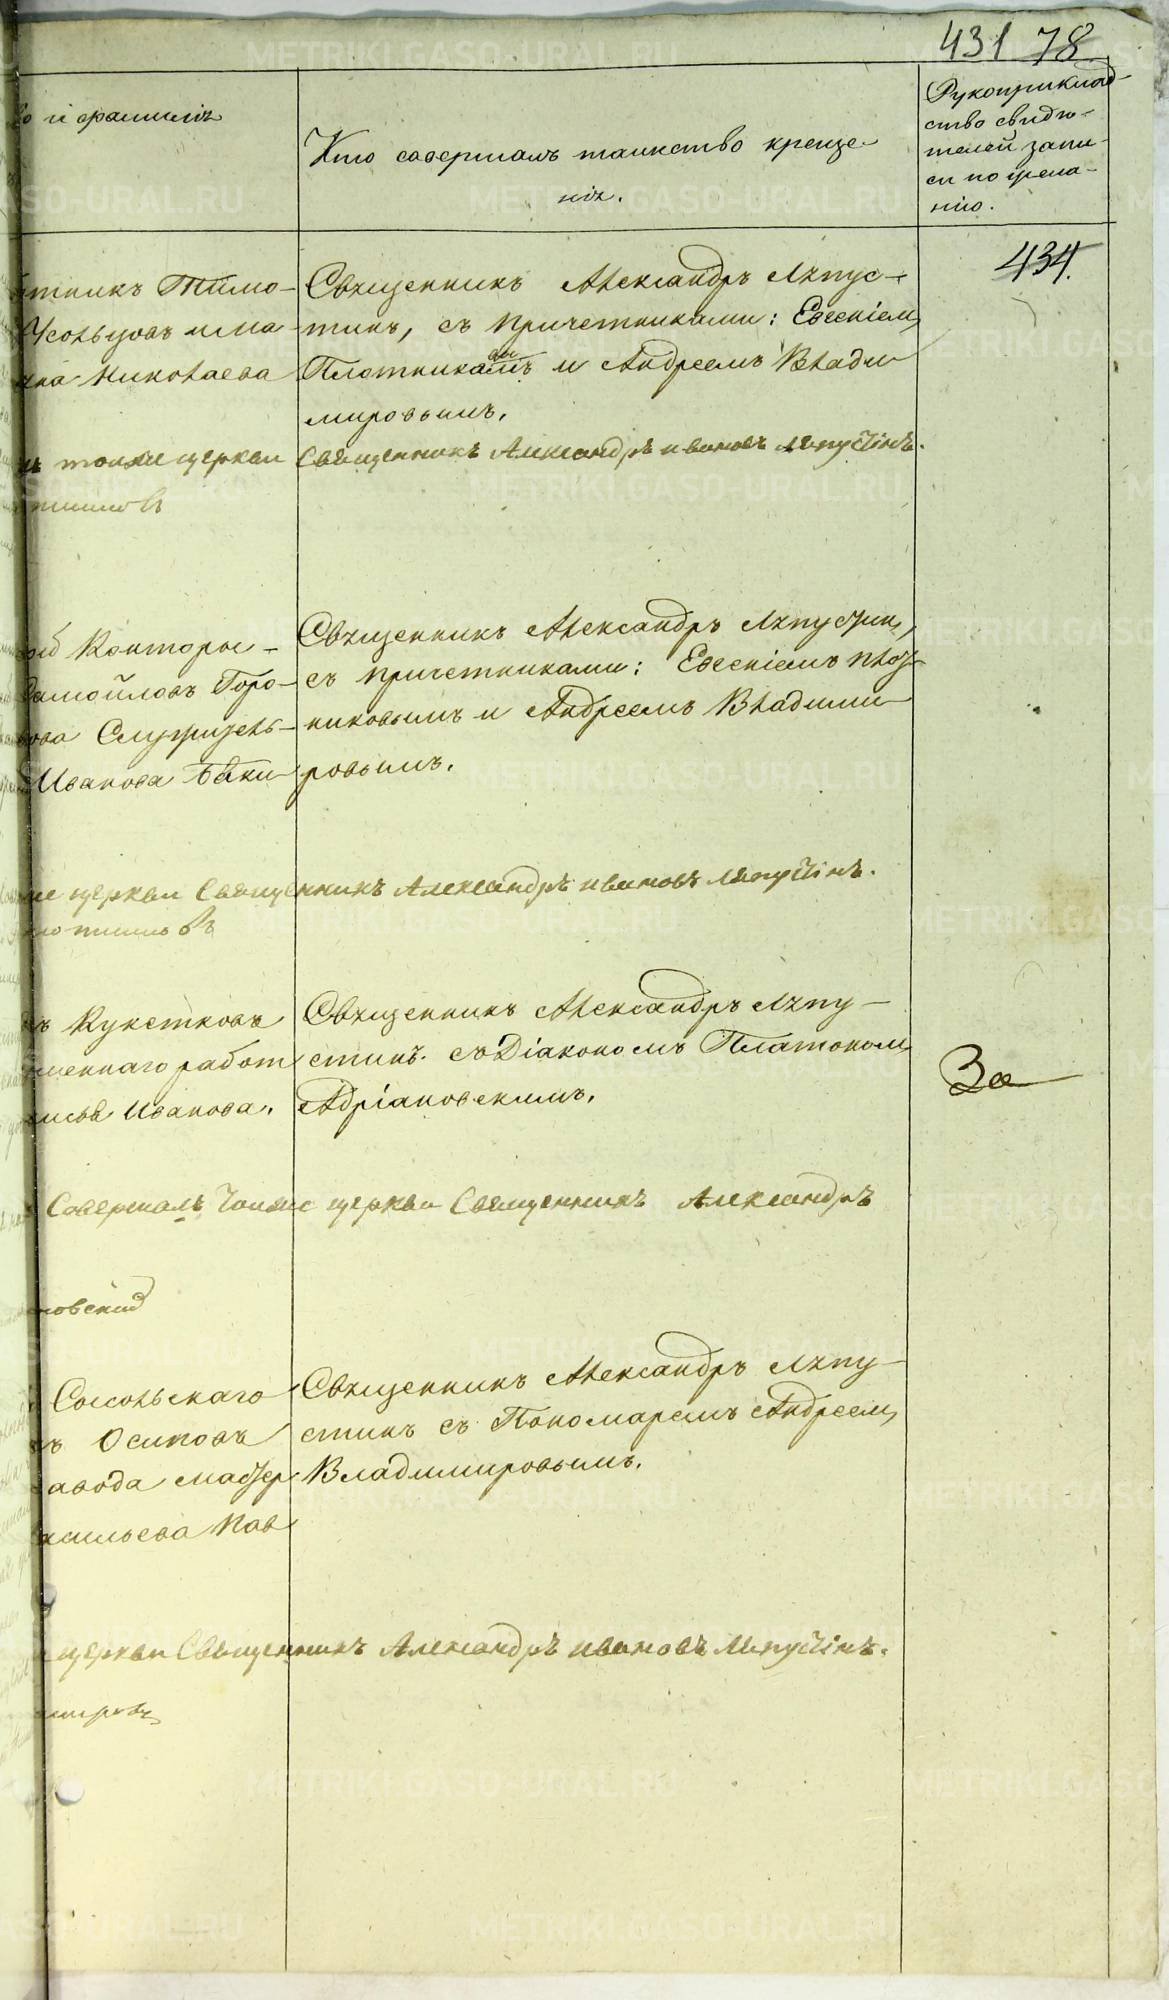 431 78
о и фамилія
Кто совершалъ таинство креще-
нія.
Рукоприклад-
ство свидѣ-
телей запи-
си по жела-
нію.
434.
Тимо-
Усольцовъ и
Николаева
Священникъ Александръ Ляпус-
тинъ, съ причетниками: Евгеніем
Плотниковымъ и Андреемъ Влади
мировымъ.
тойже церкви Священникъ Александръ Ивановъ Ляпустинъ.
Конторы-
Самойловъ Горо-
ова Служитель-
Иванова
Священникъ Александръ Ляпустин,
съ причетниками: Евгеніемъ Плот
никовымъ и Андреемъ Владими
ровымъ.
же церкви Священникъ Александръ Ивановъ Ляпустинъ.
ъ Кукетковъ
меннаго работ
Иванова.
Священникъ Александръ Ляпу-
стинъ. съ Діакономъ Платоном
Адріановскимъ.
За
Совершалъ тойже церкви Священникъ Александръ
новский
Сысольскаго
ъ Осиповъ
авода мастер
асильева Пав
Священникъ Александръ Ляпу-
стинъ съ Пономаремъ Андреем
Владимировымъ.
церкви Священникъ Александръ Ивановъ Ляпустинъ.
METRIKI.GASO-URAL.RU